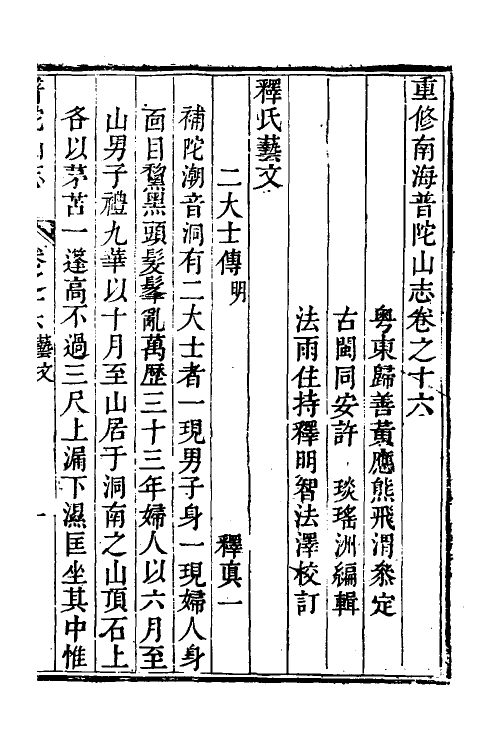 重修南海普陀山志卷之十六
粤東歸善黃應熊飛渭叅定
古閩同安許 琰瑤洲編輯
法雨住持釋明智法澤校訂
釋氏藝文
二大士傳明 釋真一
補陀潮音洞有二大士者一現男子身一現婦人身
面目黧黑頭髮髼亂萬歷三十三年婦人以六月至
山男子禮九華以十月至山居于洞南之山頂石上
各以茅苫一蓬高不過三尺上漏下濕匡坐其中惟
普陀山志 卷之十六藝文 一